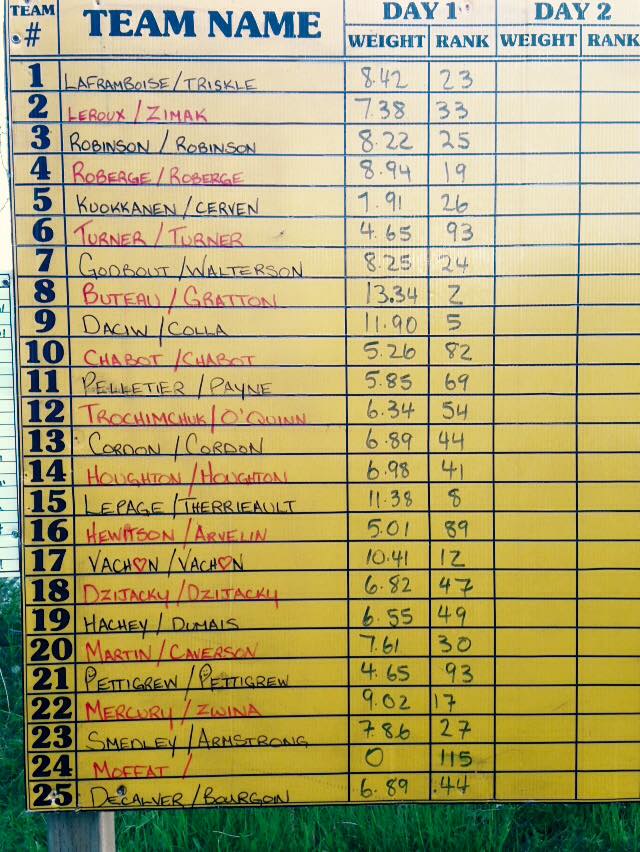 TEAM # TEAM NAME DAY 1 DAY 2
WEIGHT RANK WEIGHT RANK
1 LAFRAMBOISE/TRISKLE 8.42 23
2 LEROUX/ZIMAK 7.38 33
3 ROBINSON/ROBINSON 8.22 25
4 ROBERGE/ROBERGE 8.94 19
5 KUOKKANEN/CERVEN 7.91 26
6 TURNER/TURNER 4.65 93
7 GODBOUT/WALTERSON 8.25 24
8 BUTEAU/GRATTON 13.34 2
9 DACIW/COLLA 11.90 5
10 CHABOT/CHABOT 5.26 82
11 PELLETIER/PAYNE 5.85 69
12 TROCHIMCHUK/O'QUINN 6.34 54
13 CORDON/CORDON 6.89 44
14 HOUGHTON/HOUGHTON 6.98 41
15 LEPAGE/THERRIEAULT 11.38 8
16 HEWITSON/ARVELIN 5.01 89
17 VACH♡N/VACH♡N 10.41 12
18 DZIJACKY/DZIJACKY 6.82 47
19 HACHEY/DUMAIS 6.55 49
20 MARTIN/CAVERSON 7.61 30
21 PETTIGREW/PETTIGREW 4.65 93
22 MERCURY/ZWINA 9.02 17
23 SMEDLEY/ARMSTRONG 7.86 27
24 MOFFAT/ 0 115
25 DECALVER/BOURGOIN 6.89 44